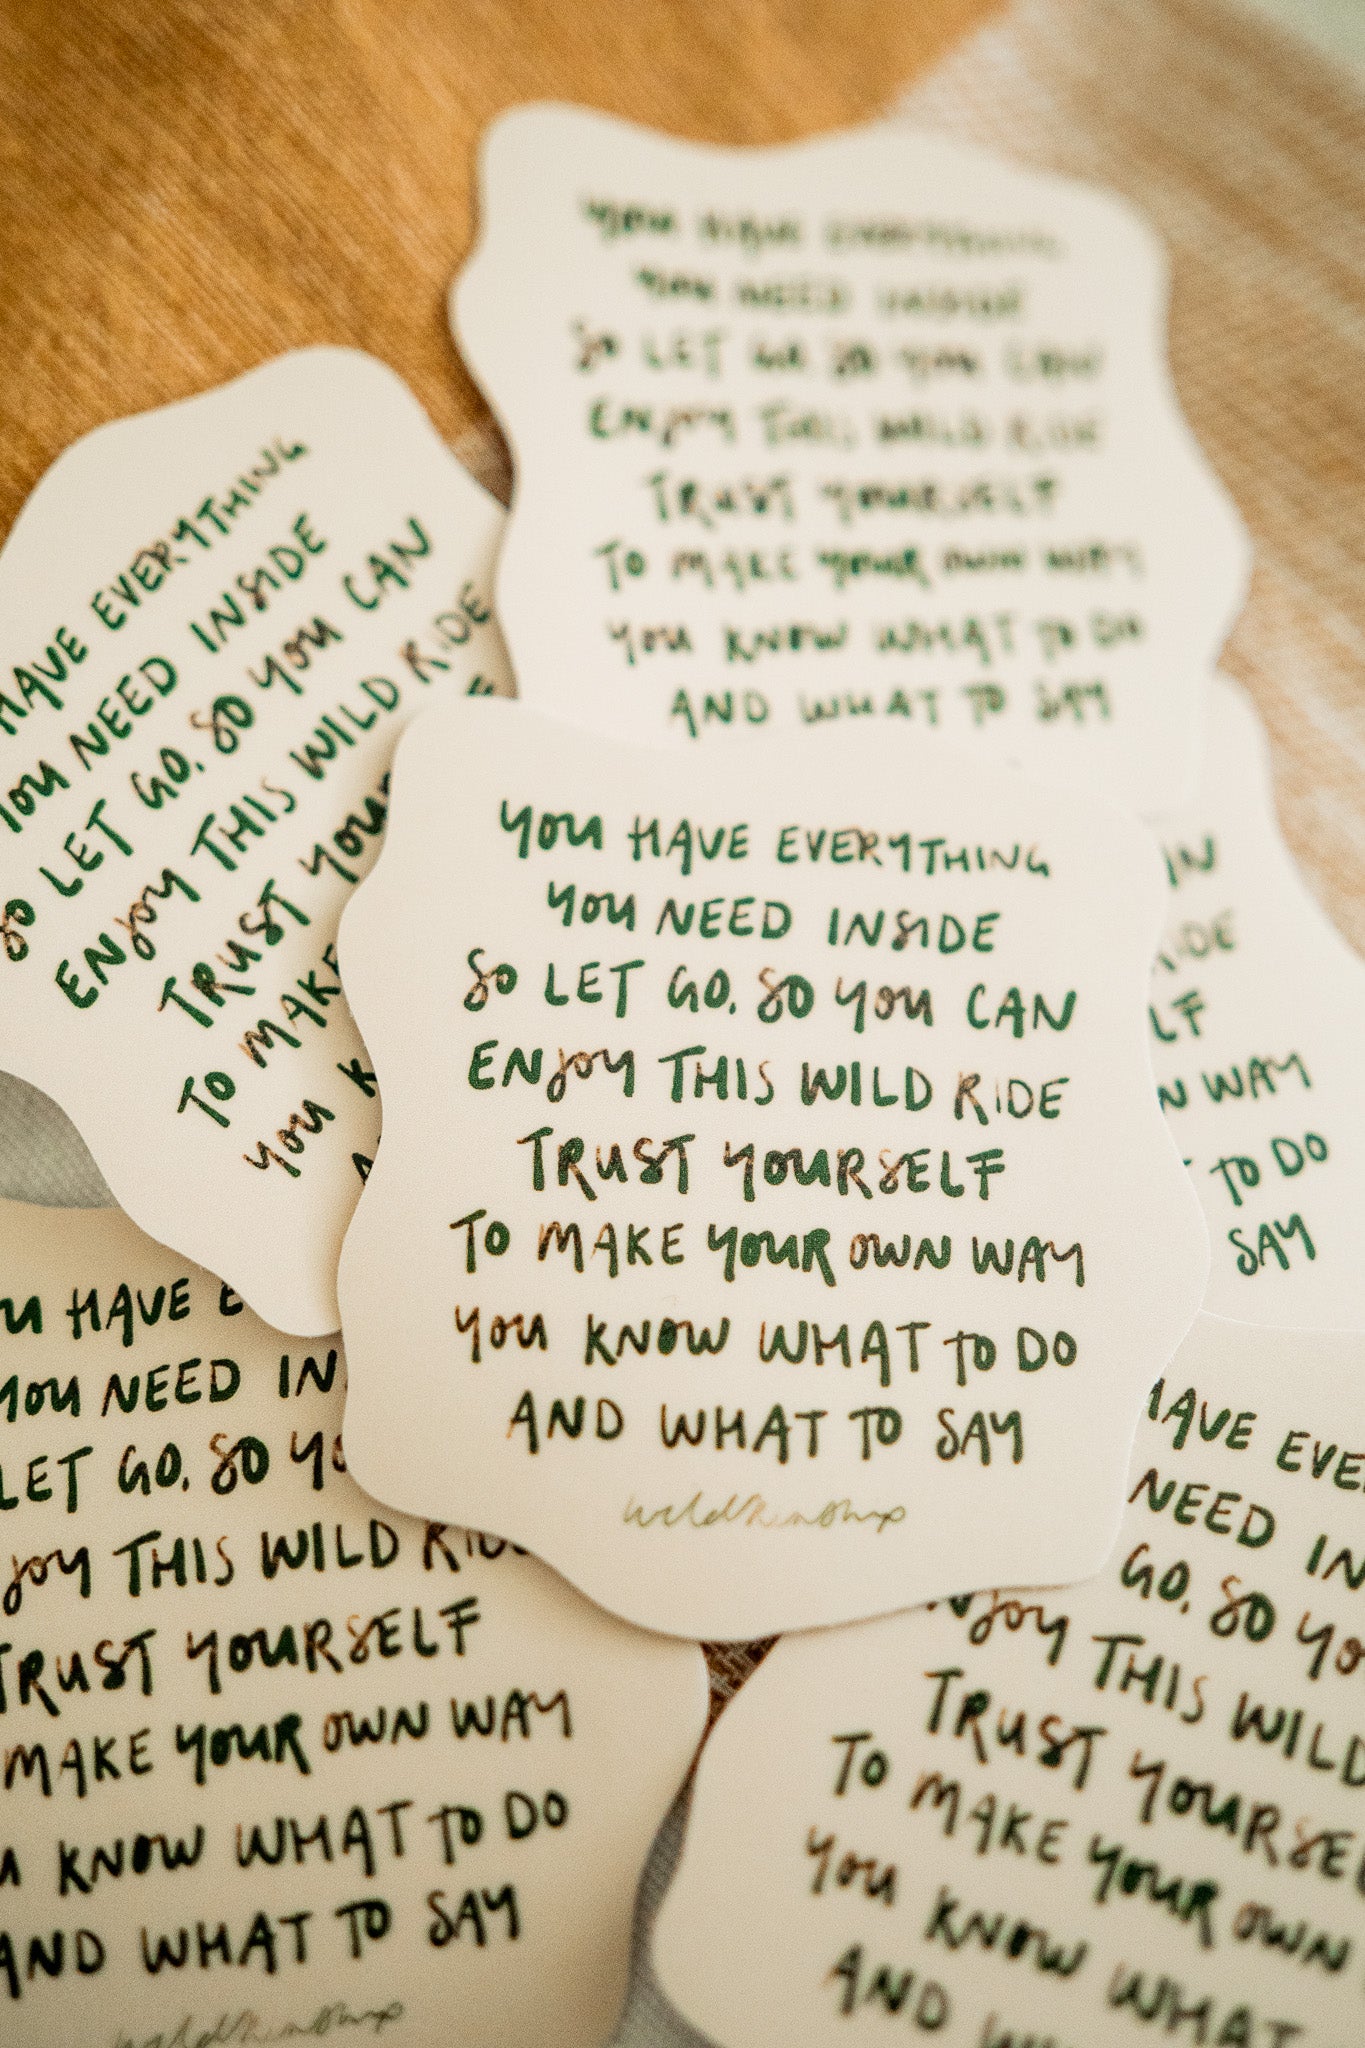 YOU HAVE EVERYTHING
YOU NEED INSIDE
SO LET GO. SO YOU CAN
ENJOY THIS WILD RIDE
TRUST YOURSELF
TO MAKE YOUR OWN WAY
YOU KNOW WHAT TO DO
AND WHAT TO SAY
HAVE EVERYTHING
YOU NEED INSIDE
SO LET GO. SO YOU CAN
ENJOY THIS WILD RIDE
TRUST
TO MAKE
YOU
YOU HAVE EVERYTHING
YOU NEED INSIDE
SO LET GO. SO YOU CAN
ENJOY THIS WILD RIDE
TRUST YOURSELF
TO MAKE YOUR OWN WAY
YOU KNOW WHAT TO DO
AND WHAT TO SAY
WAY
TO DO
SAY
HAVE
YOU NEED
LET GO. SO
THIS WILD
TRUST YOURSELF
MAKE YOUR OWN WAY
KNOW WHAT TO DO
AND WHAT TO SAY
HAVE
NEED
GO. SO
ENJOY THIS WILD
TRUST
TO MAKE YOUR OWN
YOU KNOW WHAT
AND